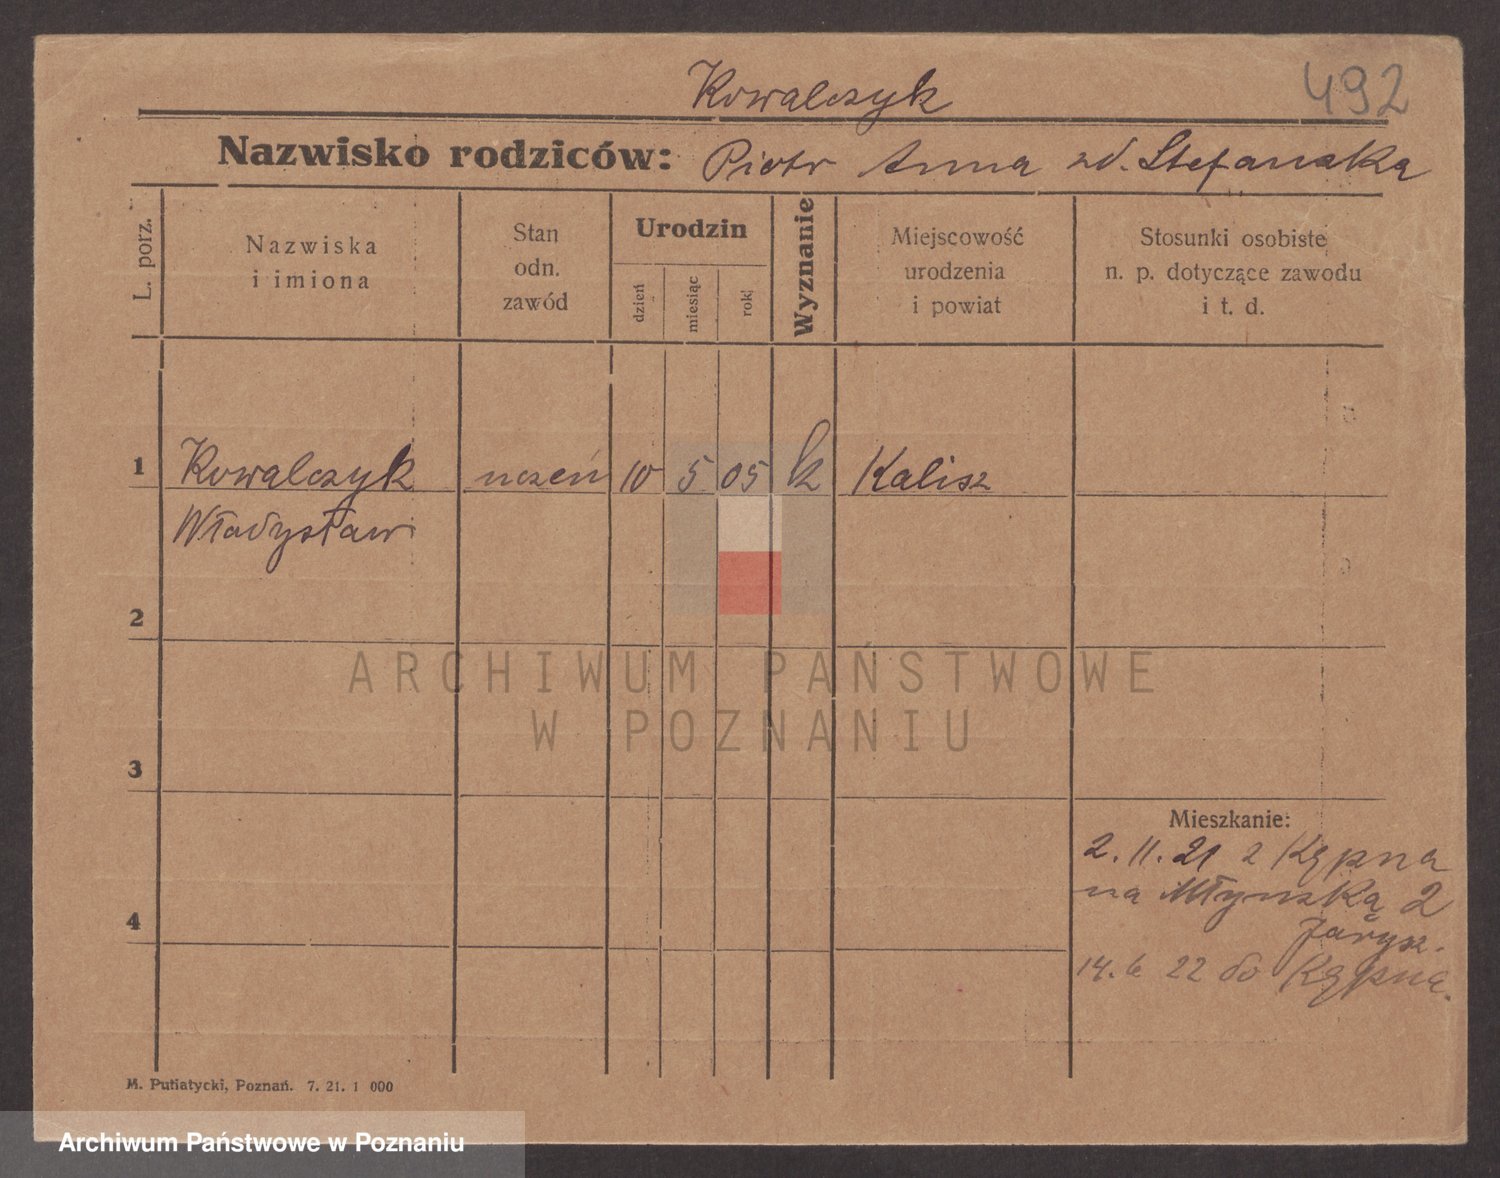 Kowalczyk
492
Nazwisko rodziców: Piotr Anna zd. Stefańska
L. porz.
Nazwiska
i imiona
Stan
odn.
zawód
Urodzin
dzień
miesiąc
rok
Wyznanie
Miejscowość
urodzenia
i powiat
Stosunki osobiste
n. p. dotyczące zawodu
i t. d.
1 Kowalczyk uczeń 10 5 05 k Kalisz
Władysław
2
ARCHIWUM PAŃSTWOWE
W POZNANIU
3
Mieszkanie:
2. 11. 21 z Kępna
na Młyńską 2
4
14. 6 22 do Kępna.
M. Putiatycki, Poznań. 7. 21. 1 000
Archiwum Państwowe w Poznaniu